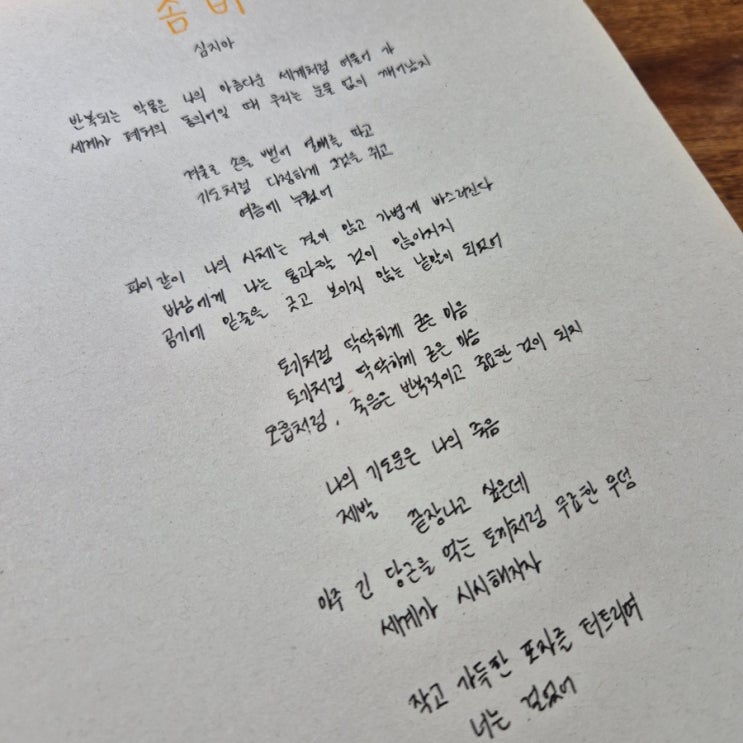 좀비
심지아
반복되는 악몽은 나의 아름다운 세계처럼 어울려 가
세계가 폐허의 동의어일 때 우리는 눈물 없이 깨어났지
겨울로 손을 뻗어 열매를 따고
기도처럼 다정하게 그것을 쥐고
여름에 누웠어
파이 같이 나의 시체는 결이 많고 가볍게 바스러진다
바람에게 나는 통과할 것이 많아지지
공기에 밑줄을 긋고 보이지 않는 낱말이 되었어
토기처럼 딱딱하게 굳은 마음
토기처럼 딱딱하게 굳은 마음
오줌처럼, 죽음은 반복적이고 중요한 것이 되지
나의 기도문은 나의 죽음
제발 끝장나고 싶은데
아주 긴 당근을 먹는 토끼처럼 무료한 무덤
세계가 시시해지자
작고 가득한 포자를 터트리며
너는 걸었어